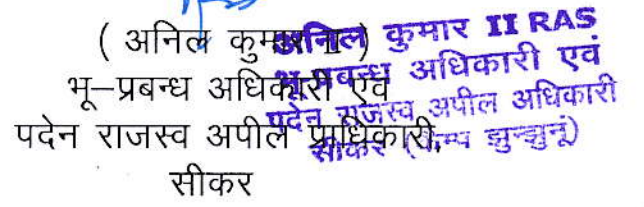 ( अनिल कुमार II )
भू–प्रबन्ध अधिकारी एवं
पदेन राजस्व अपील प्राधिकारी,
सीकर
अनिल कुमार II RAS
भू-प्रबन्ध अधिकारी एवं
पदेन राजस्व अपील अधिकारी
सीकर (कैम्प झुन्झुनूं)